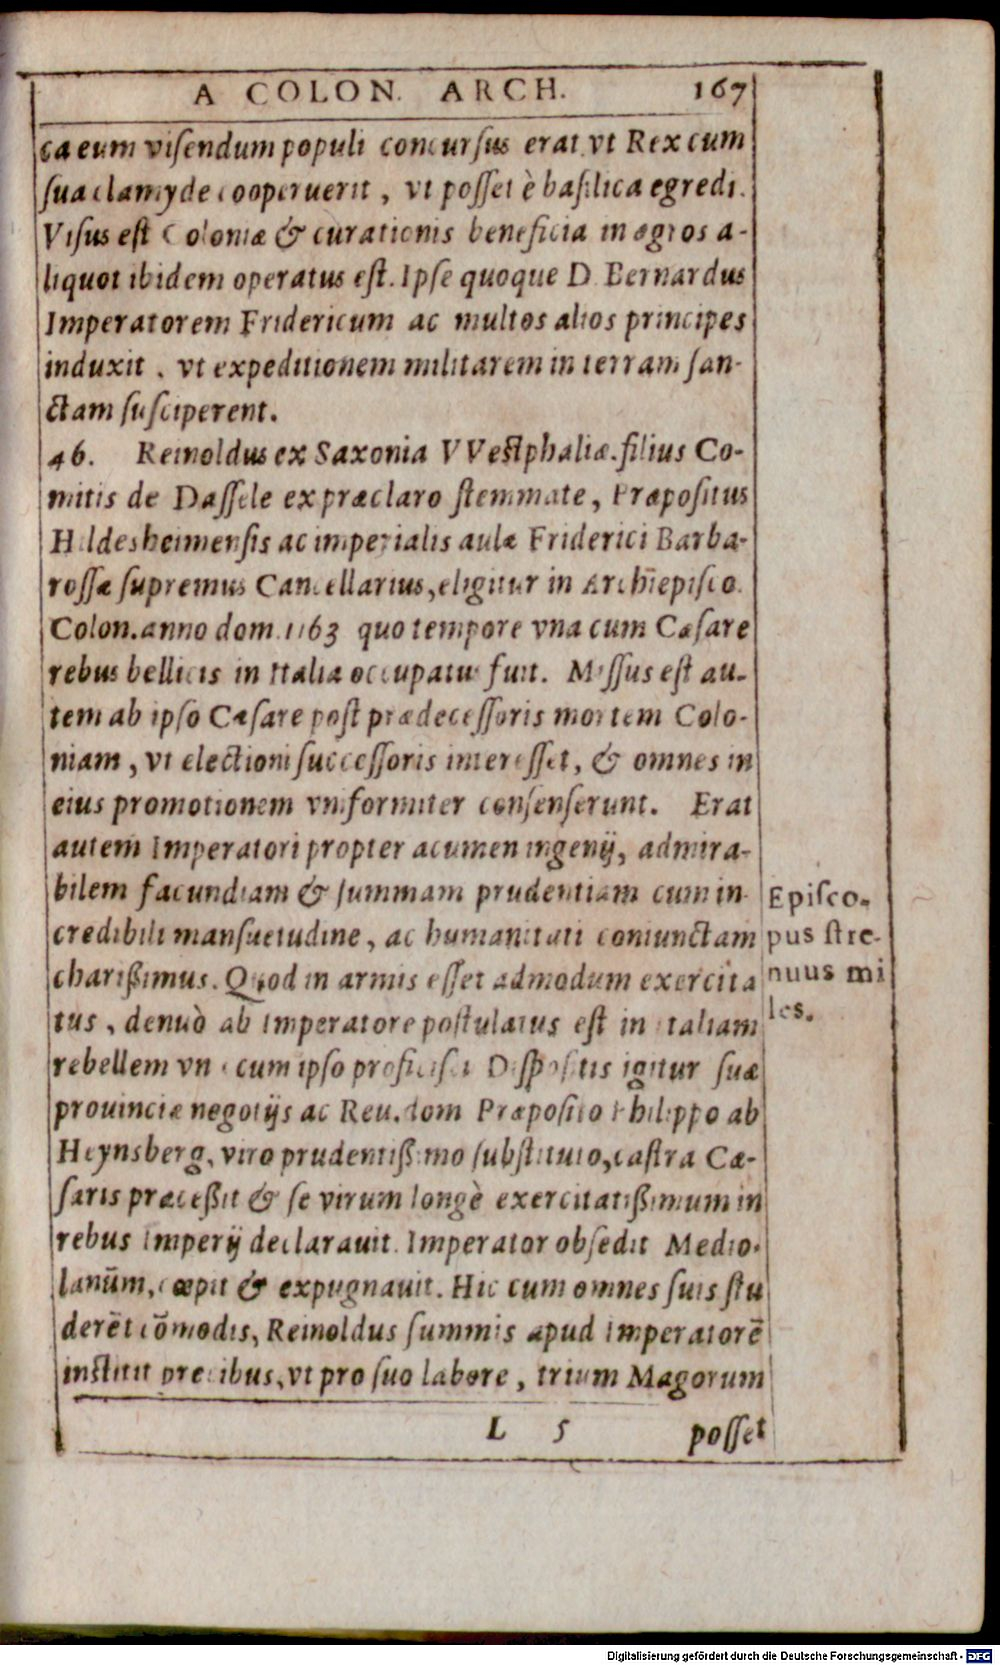 A COLON. ARCH. 167
ca eum visendum populi concursus erat vt Rex cum
sua clamyde cooperuerit, vt posset è basilica egredi.
Visus est Coloniæ & curationis beneficia in ægros a-
liquot ibidem operatus est. Ipse quoque D. Bernardus
Imperatorem Fridericum ac multos alios principes
induxit, vt expeditionem militarem in terram san-
ctam susciperent.
46. Reinoldus ex Saxonia VVestphaliæ. filius Co-
mitis de Dassele ex præclaro stemmate, Præpositus
Hildesheimensis ac imperialis aulæ Friderici Barba-
rossæ supremus Cancellarius, eligitur in Archiepisco.
Colon. anno dom. 1163 quo tempore vna cum Cæsare
rebus bellicis in Italia occupatus fuit. Missus est au-
tem ab ipso Cæsare post prædecessoris mortem Colo-
niam, vt electioni successoris interesset, & omnes in
eius promotionem vniformiter consenserunt. Erat
autem Imperatori propter acumen ingenij, admira-
bilem facundiam & summam prudentiam cum in
credibili mansuetudine, ac humanitati coniunctam
charißimus. Quod in armis esset admodum exercita
tus, denuò ab Imperatore postulatus est in Italiam
rebellem vna cum ipso proficisci. Dispositis igitur suæ
prouinciæ negotijs ac Reu. dom Præposito Philippo ab
Heynsberg, viro prudentißimo substituto, castra Cæ-
saris præceßit & se virum longè exercitatißimum in
rebus Imperij declarauit. Imperator obsedit Medio-
lanũm, cœpit & expugnauit. Hic cum omnes suis stu
derẽt cõmodis, Reinoldus summis apud Imperatorẽ
institit precibus, vt pro suo labore, trium Magorum
L 5 posset
Episco-
pus stre-
nuus mi
les.
Digitalisierung gefördert durch die Deutsche Forschungsgemeinschaft - DFG